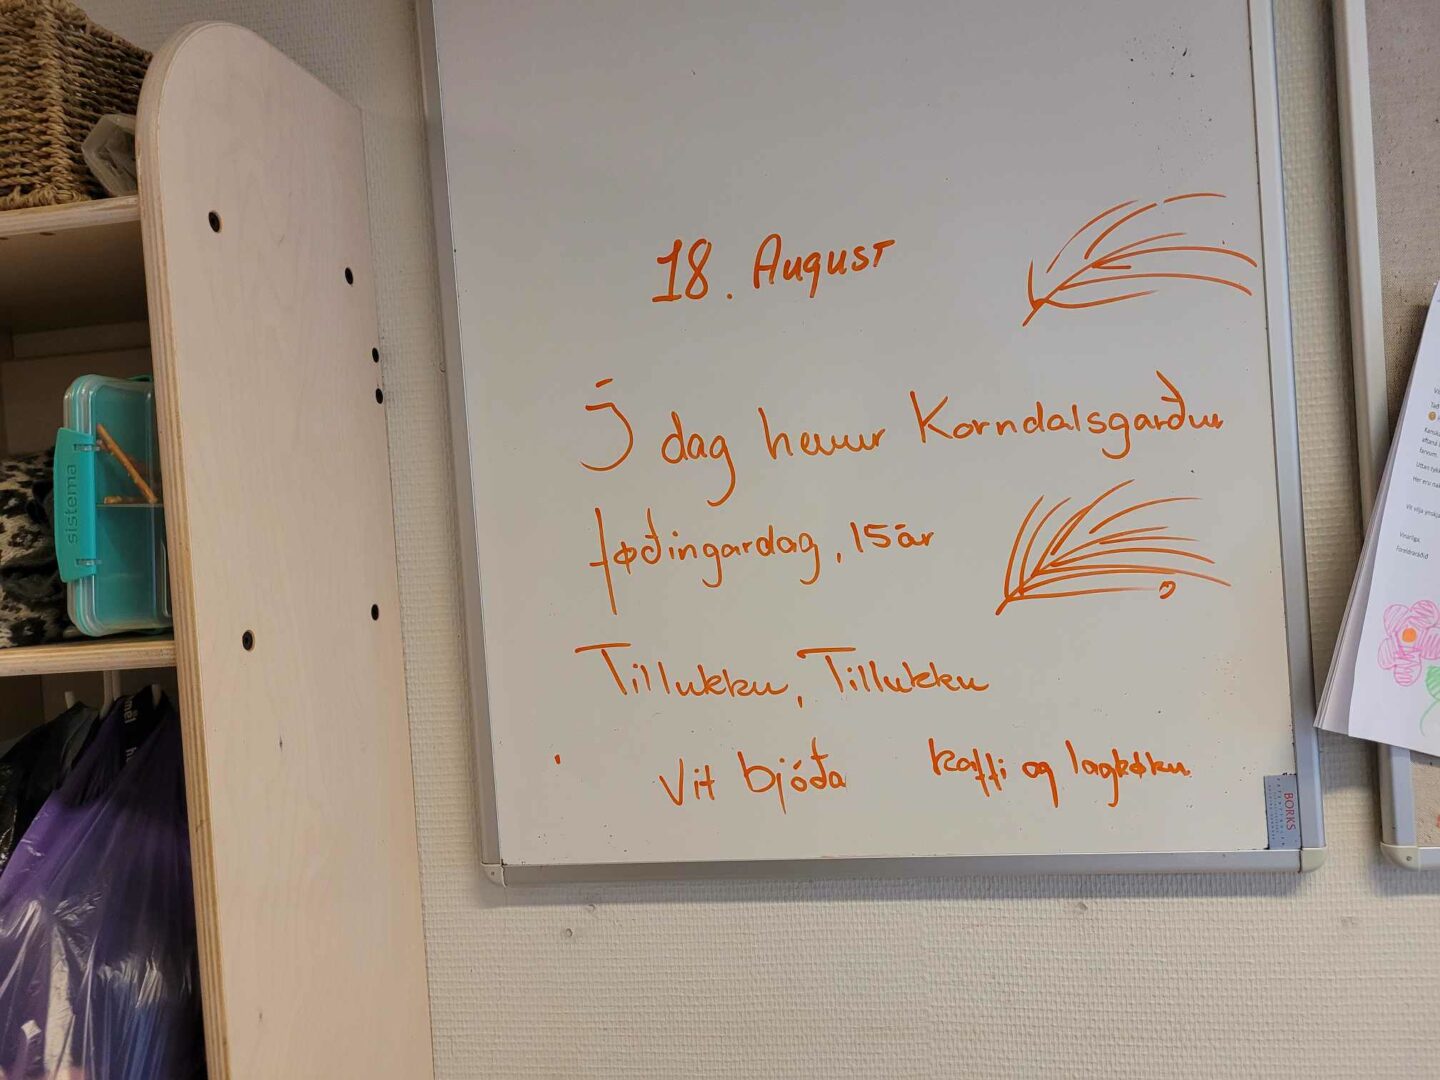 18. August
Í dag hevur Korndalsgarður
føðingardag, 15 ár
Tillukku, Tillukku
Vit bjóða kaffi og lagkøku
sistema
BORKS
Vinarliga
Foreldraráðið